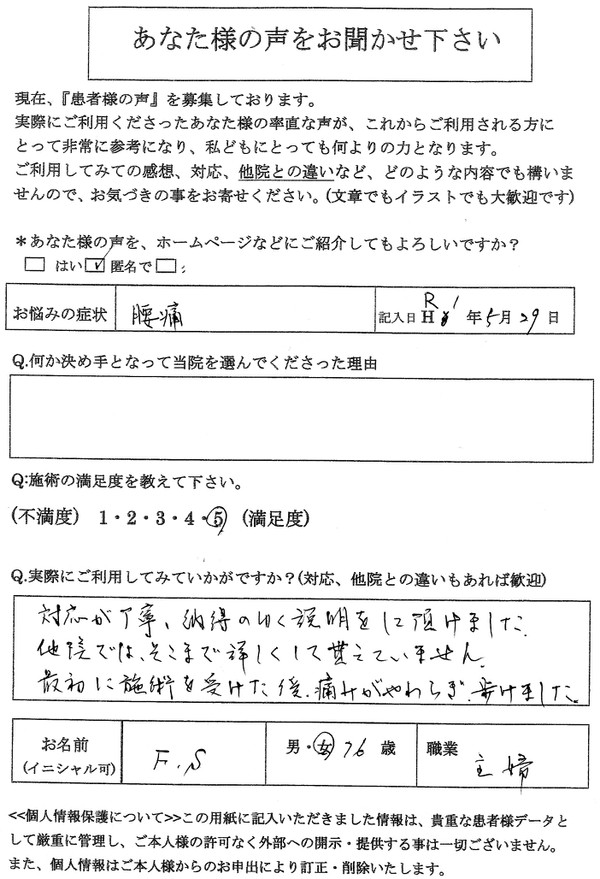 あなた様の声をお聞かせ下さい
現在、『患者様の声』を募集しております。
実際にご利用くださったあなた様の率直な声が、これからご利用される方に
とって非常に参考になり、私どもにとっても何よりの力となります。
ご利用してみての感想、対応、他院との違いなど、どのような内容でも構いま
せんので、お気づきの事をお寄せください。(文章でもイラストでも大歓迎です)
＊あなた様の声を、ホームページなどにご紹介してもよろしいですか？
□ はい ☑ 匿名で □;
お悩みの症状 腰痛 記入日 R H 1 年 5月 29 日
Q.何か決め手となって当院を選んでくださった理由
Q:施術の満足度を教えて下さい。
(不満度) 1・2・3・4・⑤ (満足度)
Q.実際にご利用してみていかがですか？(対応、他院との違いもあれば歓迎)
対応が丁寧、納得のゆく説明をして頂けました。
他院では、そこまで詳しくして貰えていません。
最初に施術を受けた後、痛みがやわらぎ、歩けました。
お名前 (イニシャル可) F.S 男・女 76 歳 職業 主婦
<<個人情報保護について>>この用紙に記入いただきました情報は、貴重な患者様データと
して厳重に管理し、ご本人様の許可なく外部への開示・提供する事は一切ございません。
また、個人情報はご本人様からのお申出により訂正・削除いたします。